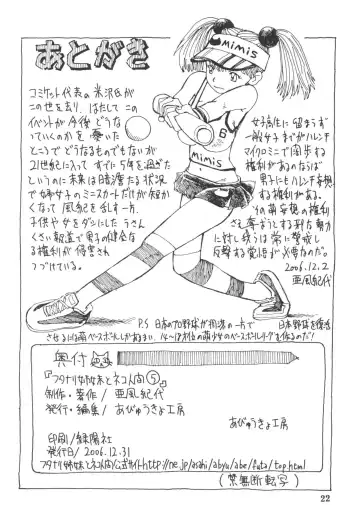 あとがき
MiMiS
6
MiMiS
コミケット代表の米沢氏が
この世を去り、はたして この
イベントが今後 どうなっ
ていくのかを 憂いた
ところで どうなるものでもないが
21世紀に入って すでに5年を過ぎた
というのに 未来は暗澹たる状況
で 姉妹女子のミニスカートだけが短か
くなって 風紀を乱す一方、
子供や女をダシにした うさん
くさい報道で男子の健全な
る権利が侵害され
つづけている。
女子高生に留まらず
一般女子までがハレンチ
マイクロミニで闊歩する
権利があるのならば
男子にもハレンチ妄想
する権利がある。
その萌妄想の権利
さえ奪おうとする行為動力
に対し我らは常に警戒し
反撃する覚悟が必要なのだ。
2006.12.2
亜風紀代
P.S 日本のプロ野球が
日本野球を復活
させるには
奥付
『フタナリ姉妹とネコ人肉⑤』
制作・著作 / 亜風紀代
発行・編集 / あびゅうきょ工房
あびゅうきょ工房
印刷 / 緑陽社
発行日 / 2006.12.31
フタナリ姉妹とネコ人肉公式サイトhttp://ne.jp/asahi/abyu/abe/futa/top.html
(禁無断転写)
22